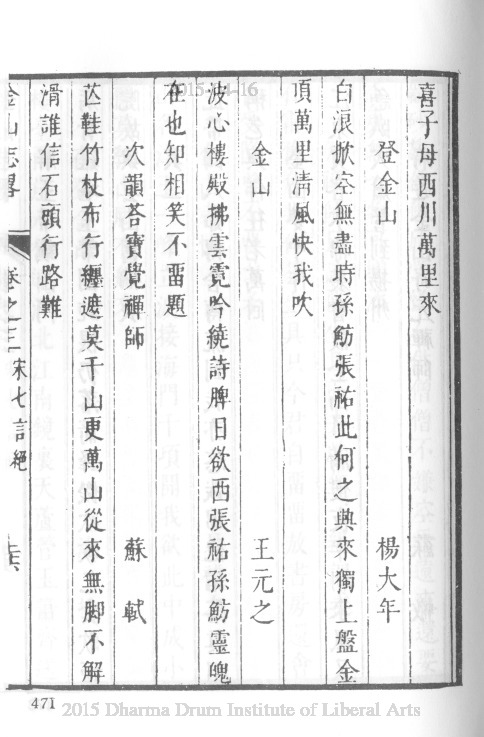 喜子母西川萬里來
登金山 楊大年
白浪掀空無盡時孫魴張祐此何之興來獨上盤金
頂萬里清風快我吹
金山 王元之
波心樓殿拂雲霓吟繞詩牌日欲西張祐孫魴靈魄
在也知相笑不留題
次韻荅寶覺禪師 蘇軾
芒鞋竹杖布行纏遮莫千山更萬山從來無脚不解
滑誰信石頭行路難
金山志畧 卷之三 宋七言絕
471
2015-04-16
2015 Dharma Drum Institute of Liberal Arts